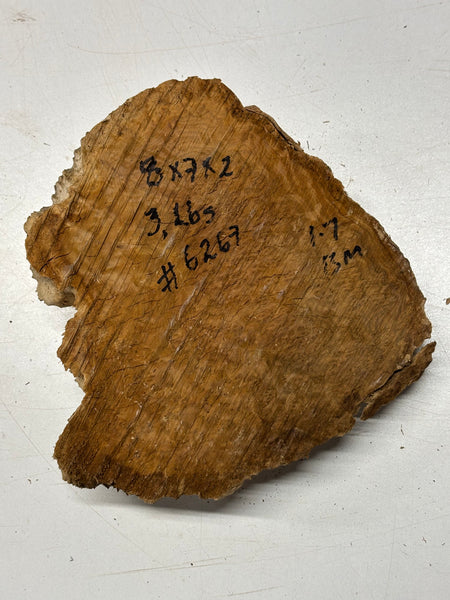 8x7x2
3, Lbs
#6267
1.7
BM